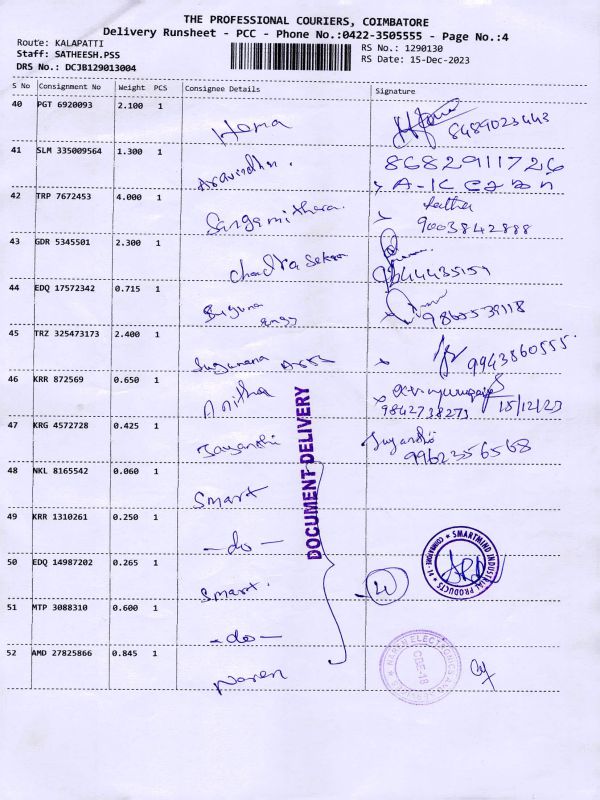 THE PROFESSIONAL COURIERS, COIMBATORE
Delivery Runsheet - PCC - Phone No.:0422-3505555 - Page No.:4
Route: KALAPATTI
Staff: SATHEESH.PSS
DRS No.: DCJB129013004
RS No.: 1290130
RS Date: 15-Dec-2023
S No Consignment No Weight PCS Consignee Details Signature
40 PGT 6920093 2.100 1
Hema 8489023443
41 SLM 335009564 1.300 1
Aravindhn. 8682911726
42 TRP 7672453 4.000 1
Sangamithara. 9003842888
43 GDR 5345501 2.300 1
Chandra Sekar
44 EDQ 17572342 0.715 1
Suguna
engg
45 TRZ 325473173 2.400 1
9943860555
46 KRR 872569 0.650 1
Anitha 9842738273 15/12/23
47 KRG 4572728 0.425 1
9962356568
48 NKL 8165542 0.060 1
Smart
49 KRR 1310261 0.250 1
-do-
50 EDQ 14987202 0.265 1
Smart.
51 MTP 3088310 0.600 1
-do-
52 AMD 27825866 0.845 1
Naren
DOCUMENT DELIVERY
SMARTMIND INDUSTRIAL PRODUCTS
NAREN ELECTRONICS
CBE-18